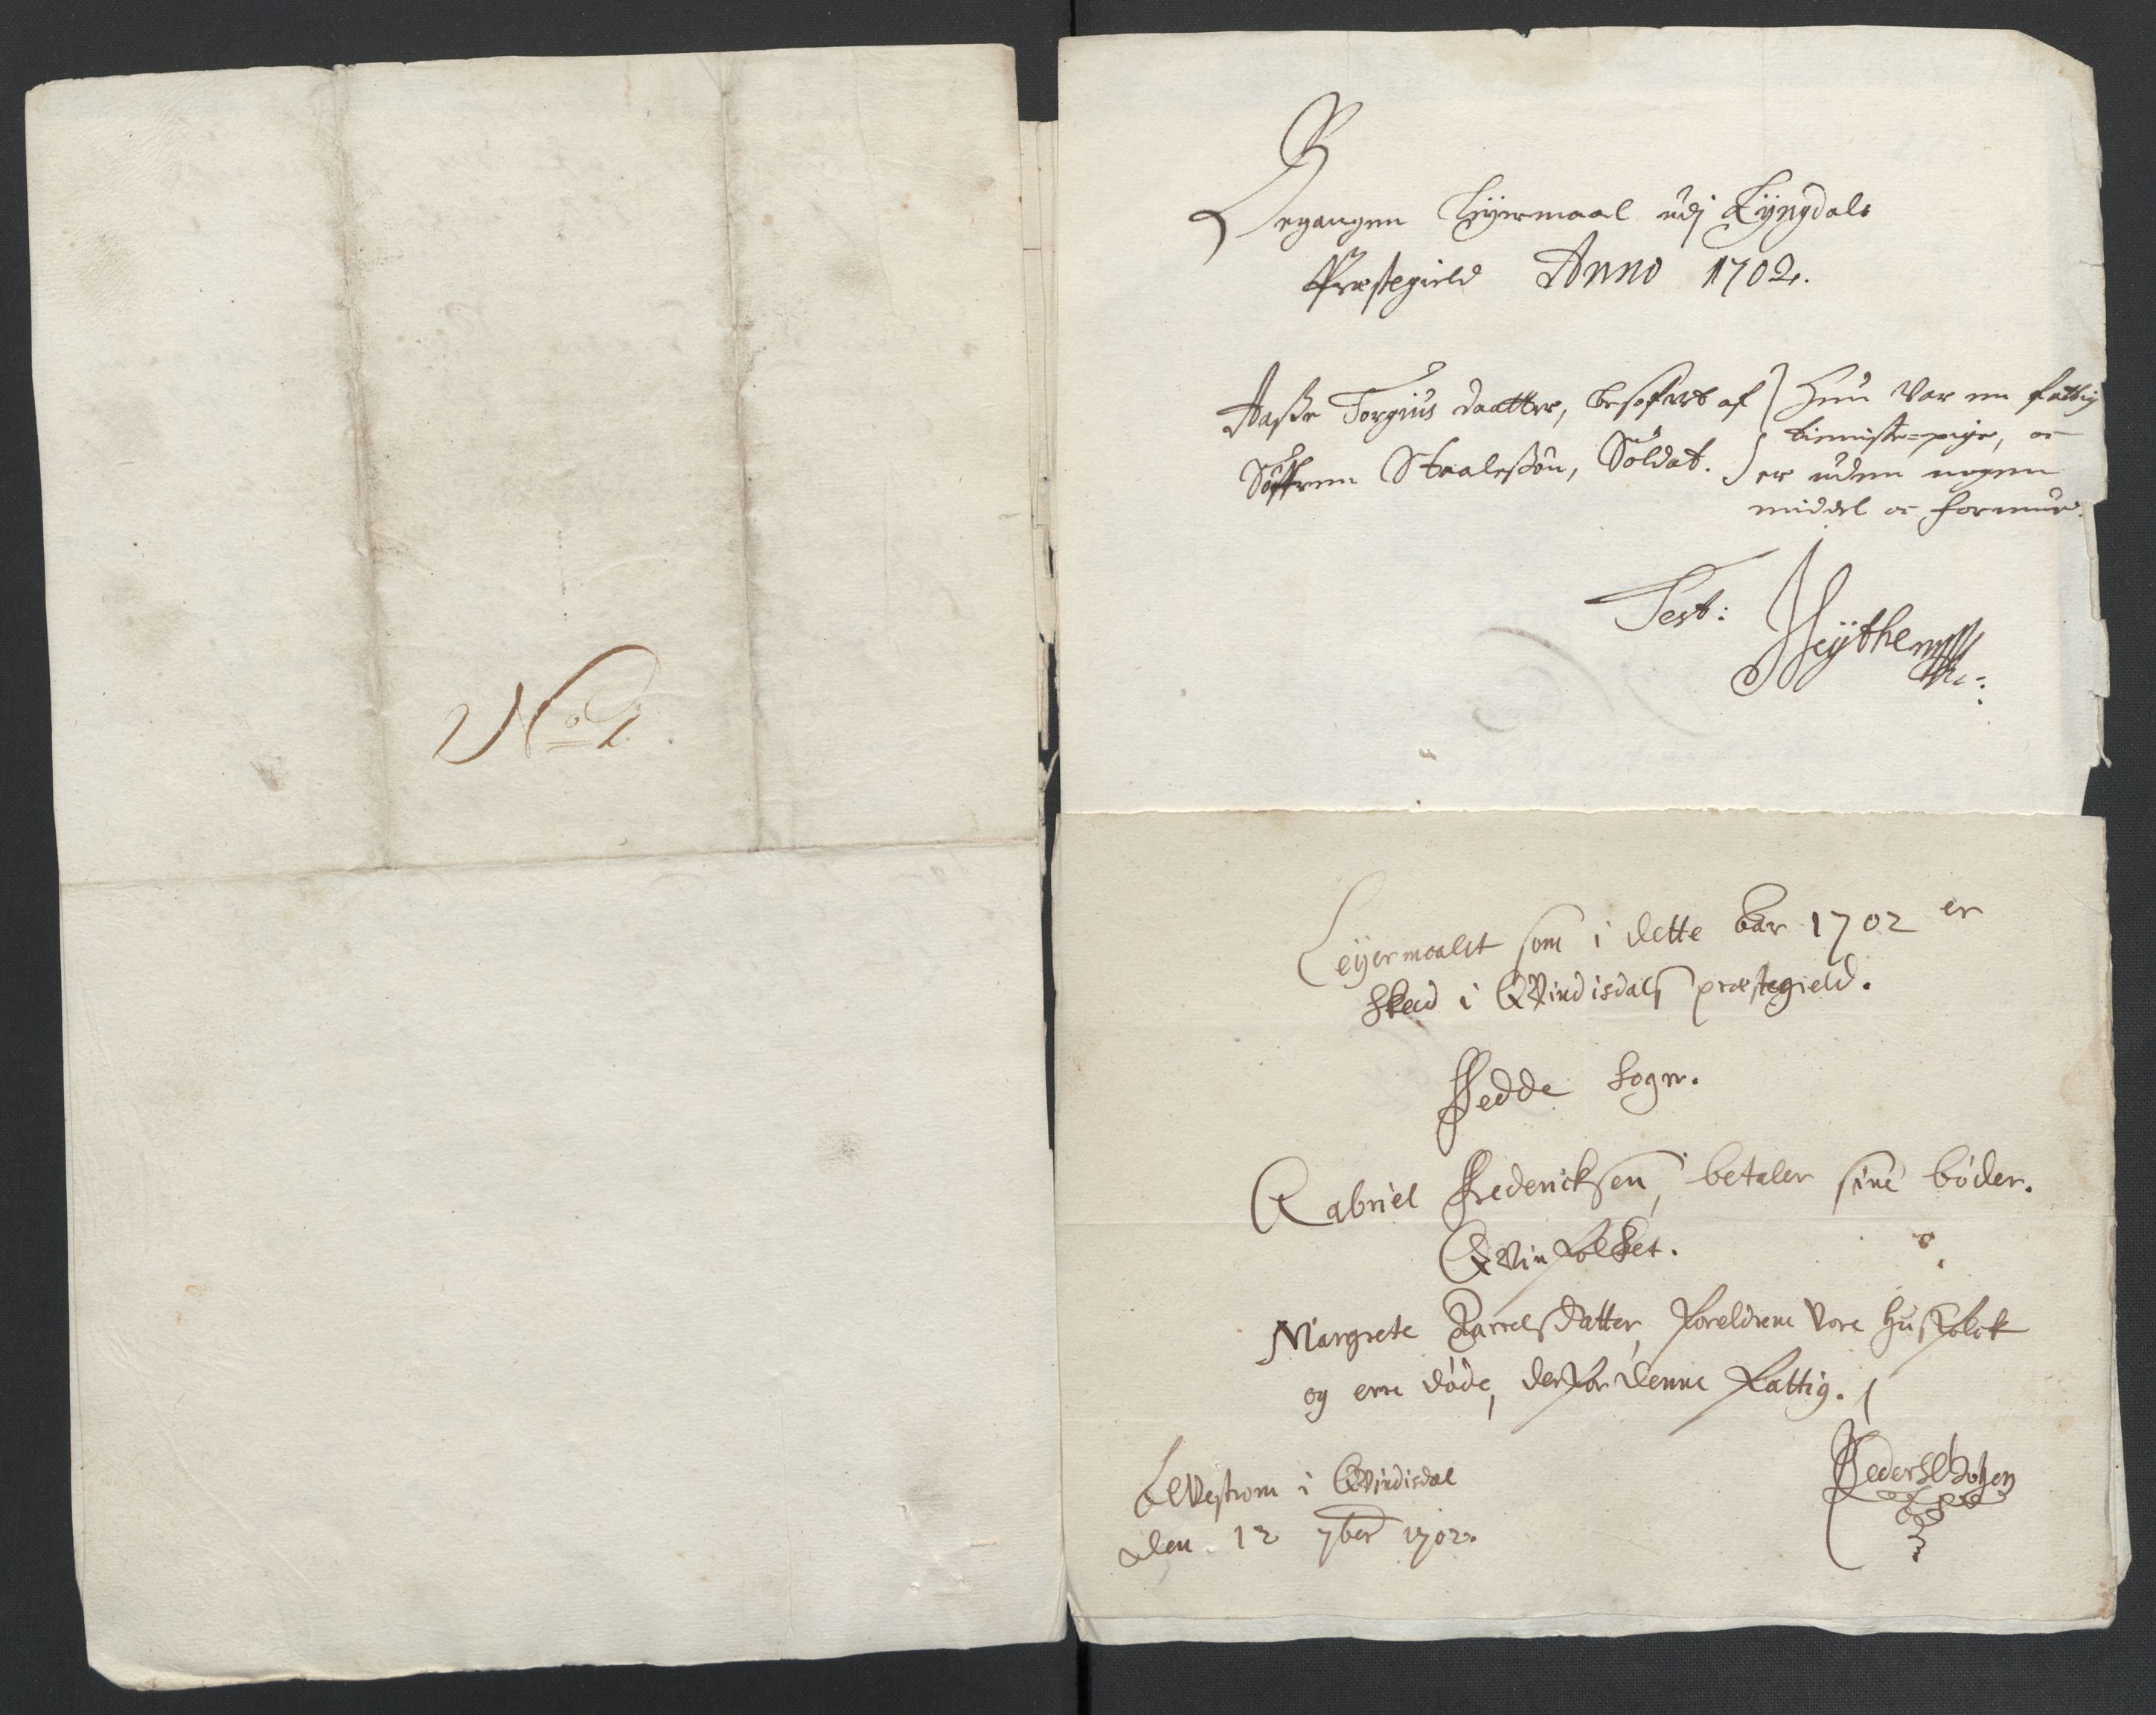 No 2.
Begangen Leyermaal udj Lyngdals
Præstegield Anno 1702.
Aasse Torgius daatter, besofret af
Søffren Staalessøn, Soldat.
Hun var en fattig
tienniste=pige, oc
er uden nogen
middel oc formue.
Test:
Leyermaalet som i dette aar 1702 er
skeed i Qvindisdals præstegield.
Fedde sogn.
Gabriel Frederichsen, betaler sine bøder.
Qvinfolket.
Margrete Tarrelsdatter, foreldrene vore husfolck
og erre døde, derfor denne fattig.
i Qvindisdal
den 12 7ber 1702.